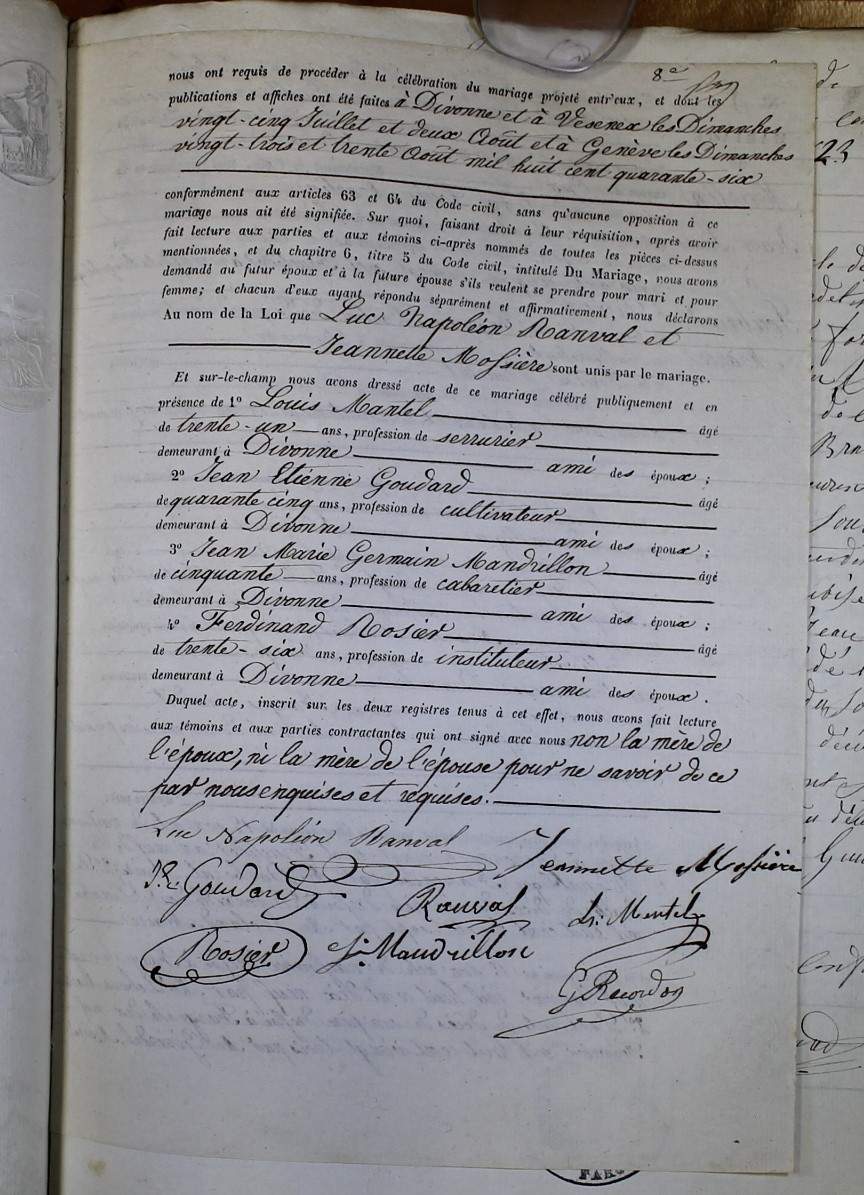 8e
nous ont requis de procéder à la célébration du mariage projeté entr'eux, et dont les
publications et affiches ont été faites à Divonne et à Vesenex les Dimanches
vingt-cinq Juillet et deux Août et à Genève les Dimanches
vingt-trois et trente Août mil huit cent quarante-six
conformément aux articles 63 et 64 du Code civil, sans qu'aucune opposition à ce
mariage nous ait été signifiée. Sur quoi, faisant droit à leur réquisition, après avoir
fait lecture aux parties et aux témoins ci-après nommés de toutes les pièces ci-dessus
mentionnées, et du chapitre 6, titre 5 du Code civil, intitulé Du Mariage, nous avons
demandé au futur époux et à la future épouse s'ils veulent se prendre pour mari et pour
femme; et chacun d'eux ayant répondu séparément et affirmativement, nous déclarons
Au nom de la Loi que Luc Napoléon Ranval et
Jeannette Mossière sont unis par le mariage.
Et sur-le-champ nous avons dressé acte de ce mariage célébré publiquement et en
présence de 1° Louis Mantel âgé
de trente-un ans, profession de serrurier
demeurant à Divonne ami des époux ;
2° Jean Etienne Goudard âgé
de quarante cinq ans, profession de cultivateur
demeurant à Divonne ami des époux ;
3° Jean Marie Germain Mandrillon âgé
de cinquante ans, profession de cabaretier
demeurant à Divonne ami des époux ;
4° Ferdinand Rosier âgé
de trente-six ans, profession de instituteur
demeurant à Divonne ami des époux.
Duquel acte, inscrit sur les deux registres tenus à cet effet, nous avons fait lecture
aux témoins et aux parties contractantes qui ont signé avec nous non la mère de
l'époux, ni la mère de l'épouse pour ne savoir de ce
par nous enquises et requises.
Luc Napoléon Ranval
Jeannette Mossière
J. E. Goudard
Ranval
Ls. Mantel
Rosier
Mandrillon
G. Recordon